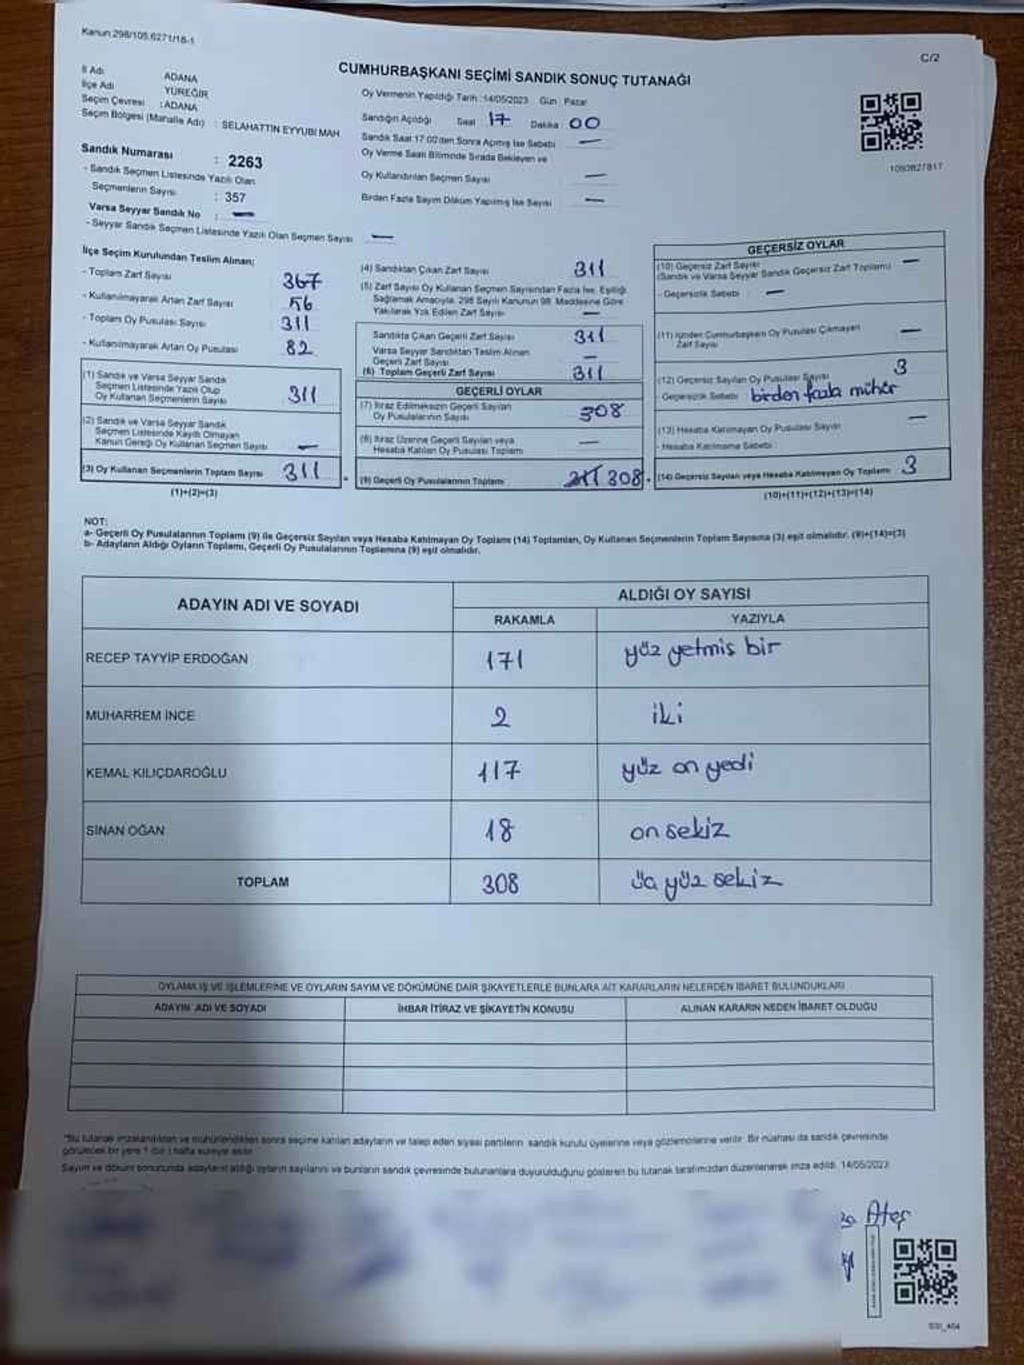 Kanun:298/105,6271/18-1
C/2
CUMHURBAŞKANI SEÇİMİ SANDIK SONUÇ TUTANAĞI
İl Adı ADANA
İlçe Adı YÜREĞİR
Seçim Çevresi : ADANA
Seçim Bölgesi (Mahalle Adı) : SELAHATTİN EYYUBİ MAH
Sandık Numarası : 2263
- Sandık Seçmen Listesinde Yazılı Olan
Seçmenlerin Sayısı : 357
Varsa Seyyar Sandık No : —
- Seyyar Sandık Seçmen Listesinde Yazılı Olan Seçmen Sayısı —
Oy Vermenin Yapıldığı Tarih :14/05/2023 Gün : Pazar
Sandığın Açıldığı Saat 17 Dakika 00
Sandık Saat 17:00'den Sonra Açılmış İse Sebebi —
Oy Verme Saati Bitiminde Sırada Bekleyen ve
Oy Kullandırılan Seçmen Sayısı —
Birden Fazla Sayım Döküm Yapılmış İse Sayısı —
1093827817
İlçe Seçim Kurulundan Teslim Alınan;
- Toplam Zarf Sayısı 367
- Kullanılmayarak Artan Zarf Sayısı 56
- Toplam Oy Pusulası Sayısı 311
- Kullanılmayarak Artan Oy Pusulası 82
(1) Sandık ve Varsa Seyyar Sandık
Seçmen Listesinde Yazılı Olup
Oy Kullanan Seçmenlerin Sayısı 311
(2) Sandık ve Varsa Seyyar Sandık
Seçmen Listesinde Kayıtlı Olmayan
Kanun Gereği Oy Kullanan Seçmen Sayısı —
(3) Oy Kullanan Seçmenlerin Toplam Sayısı 311
(1)+(2)=(3)
(4) Sandıktan Çıkan Zarf Sayısı 311
(5) Zarf Sayısı Oy Kullanan Seçmen Sayısından Fazla İse, Eşitliği
Sağlamak Amacıyla, 298 Sayılı Kanunun 98. Maddesine Göre
Yakılarak Yok Edilen Zarf Sayısı —
Sandıkta Çıkan Geçerli Zarf Sayısı 311
Varsa Seyyar Sandıktan Teslim Alınan
Geçerli Zarf Sayısı —
(6) Toplam Geçerli Zarf Sayısı 311
GEÇERLİ OYLAR
(7) İtiraz Edilmeksizin Geçerli Sayılan
Oy Pusulalarının Sayısı 308
(8) İtiraz Üzerine Geçerli Sayılan veya
Hesaba Katılan Oy Pusulası Toplamı —
(9) Geçerli Oy Pusulalarının Toplamı 311 308
GEÇERSİZ OYLAR
(10) Geçersiz Zarf Sayısı
(Sandık ve Varsa Seyyar Sandık Geçersiz Zarf Toplamı) —
- Geçersizlik Sebebi : —
(11) İçinden Cumhurbaşkanı Oy Pusulası Çıkmayan
Zarf Sayısı —
(12) Geçersiz Sayılan Oy Pusulası Sayısı 3
- Geçersizlik Sebebi : birden fazla mühür
(13) Hesaba Katılmayan Oy Pusulası Sayısı —
- Hesaba Katılmama Sebebi :
(14) Geçersiz Sayılan veya Hesaba Katılmayan Oy Toplamı 3
(10)+(11)+(12)+(13)=(14)
NOT:
a- Geçerli Oy Pusulalarının Toplamı (9) ile Geçersiz Sayılan veya Hesaba Katılmayan Oy Toplamı (14) Toplamları, Oy Kullanan Seçmenlerin Toplam Sayısına (3) eşit olmalıdır. (9)+(14)=(3)
b- Adayların Aldığı Oyların Toplamı, Geçerli Oy Pusulalarının Toplamına (9) eşit olmalıdır.
ADAYIN ADI VE SOYADI ALDIĞI OY SAYISI
RAKAMLA YAZIYLA
RECEP TAYYİP ERDOĞAN 171 yüz yetmis bir
MUHARREM İNCE 2 iki
KEMAL KILIÇDAROĞLU 117 yüz on yedi
SİNAN OĞAN 18 on sekiz
TOPLAM 308 üç yüz sekiz
OYLAMA İŞ VE İŞLEMLERİNE VE OYLARIN SAYIM VE DÖKÜMÜNE DAİR ŞİKAYETLERLE BUNLARA AİT KARARLARIN NELERDEN İBARET BULUNDUKLARI
ADAYIN ADI VE SOYADI İHBAR İTİRAZ VE ŞİKAYETİN KONUSU ALINAN KARARIN NEDEN İBARET OLDUĞU
*Bu tutanak imzalandıktan ve mühürlendikten sonra seçime katılan adayların ve talep eden siyasi partilerin sandık kurulu üyelerine veya gözlemcilerine verilir. Bir nüshası da sandık çevresinde
görülecek bir yere 1 (bir) hafta süreyle asılır.
Sayım ve döküm sonucunda adayların aldığı oyların sayılarını ve bunların sandık çevresinde bulunanlara duyurulduğunu gösteren bu tutanak tarafımızdan düzenlenerek imza edildi. 14/05/2023
Ateş